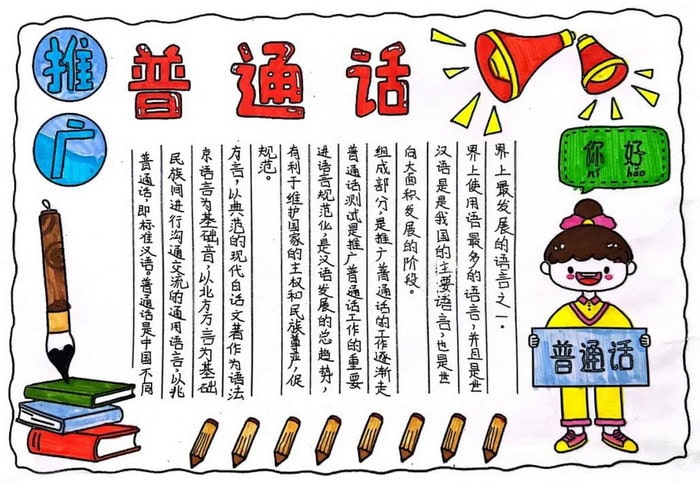 推广
普通话
你好
nǐ hǎo
普通话，即标准汉语。普通话是中国不同
民族间进行沟通交流的通用语言，以北
京语言为基础音，以北方方言为基础
方言，以典范的现代白话文著作为语法
规范。
有利于维护国家的主权和民族尊严，促
进语言规范化，是汉语发展的总趋势，
普通话测试是推广普通话工作的重要
组成部分，是推广普通话的工作逐渐走
向大面积发展的阶段。
汉语是是我国的主要语言，也是世
界上使用语最多的语言，并且是世
界上最发展的语言之一。
普通话